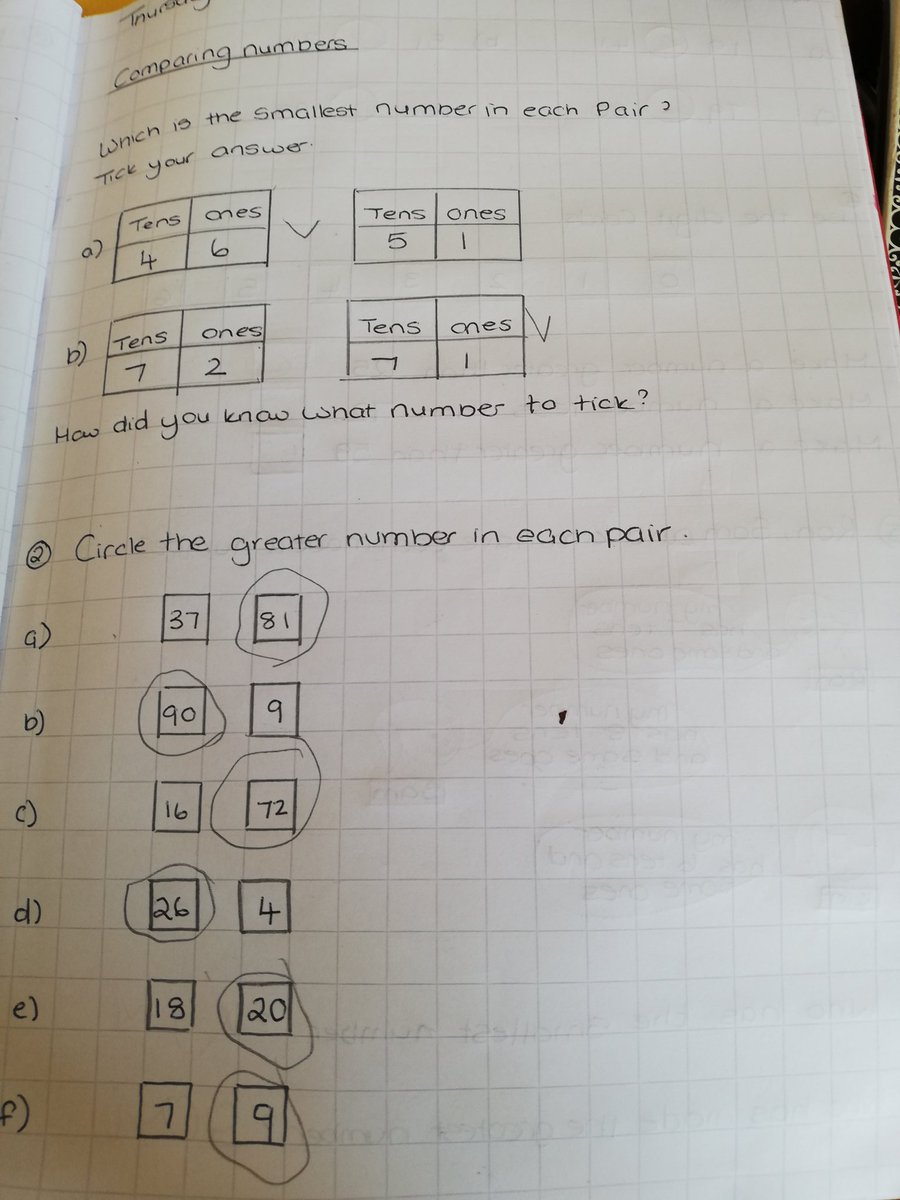 Comparing numbers
Which is the smallest number in each Pair?
Tick your answer.
a) Tens ones Tens ones
4 6 5 1
b) Tens ones Tens ones
7 2 7 1
How did you know what number to tick?
② Circle the greater number in each pair.
a) 37 81
b) 90 9
c) 16 72
d) 26 4
e) 18 20
f) 7 9